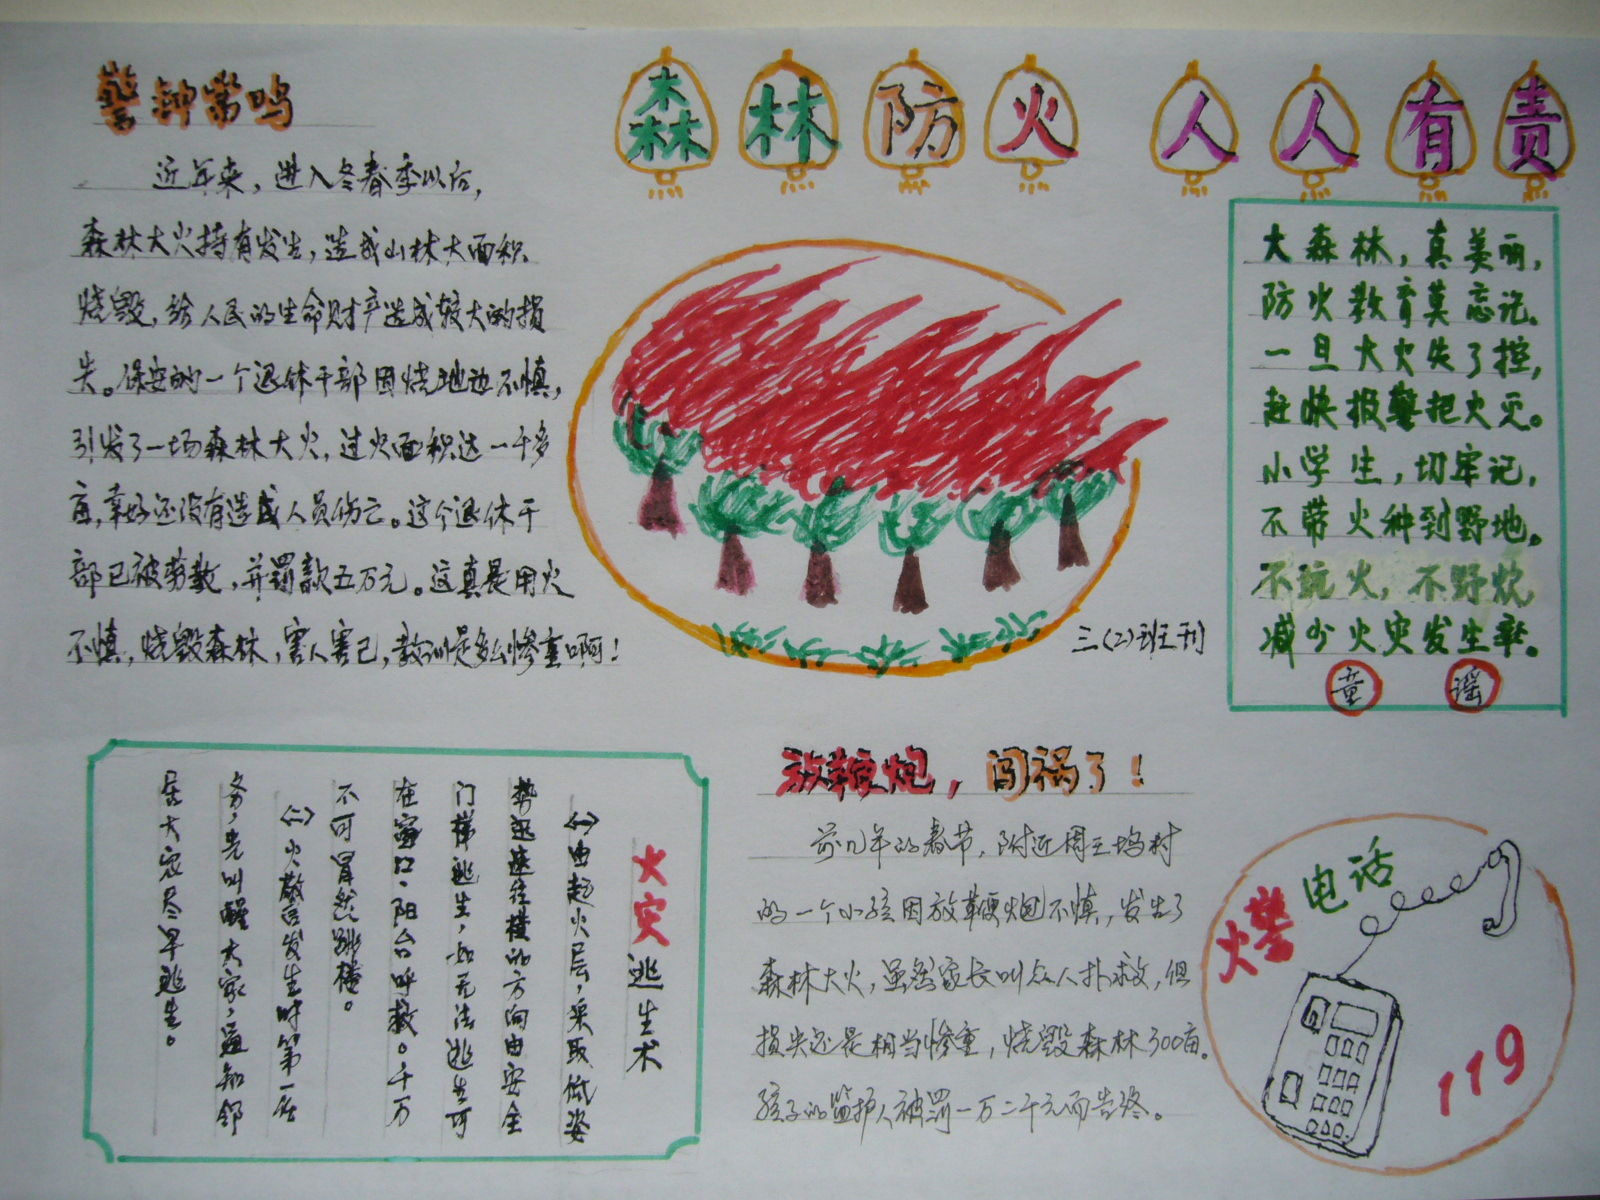 森林防火 人人有责
警钟常鸣
近年来，进入冬春季以后，
森林大火持有发生，造成山林大面积
烧毁，给人民的生命财产造成较大的损
失。保安的一个退休干部因烧地边不慎，
引发了一场森林大火，过火面积达一千多
亩，幸好还没有造成人员伤亡。这个退休干
部已被劳教，并罚款五万元。这真是用火
不慎，烧毁森林，害人害己，教训是多么惨重啊！
三(2)班刊
大森林，真美丽，
防火教育莫忘记。
一旦大火失了控，
赶快报警把火灭。
小学生，切牢记，
不带火种到野地。
不玩火，不野炊，
减少火灾发生率。
童谣
火灾逃生术
(一)由起火层，采取低姿
势迅速往楼的方向由安全
门梯逃生，如无法逃生可
在窗口、阳台呼救。千万
不可冒然跳楼。
(二)火警发生时第一任
务，先叫醒大家，通知邻
居大家尽早逃生。
放鞭炮，闯祸了！
前几年的春节，附近周王坞村
的一个小孩因放鞭炮不慎，发生了
森林大火，虽然家长叫众人扑救，但
损失还是相当惨重，烧毁森林300亩。
孩子的监护人被罚一万二千元而告终。
火警电话
119